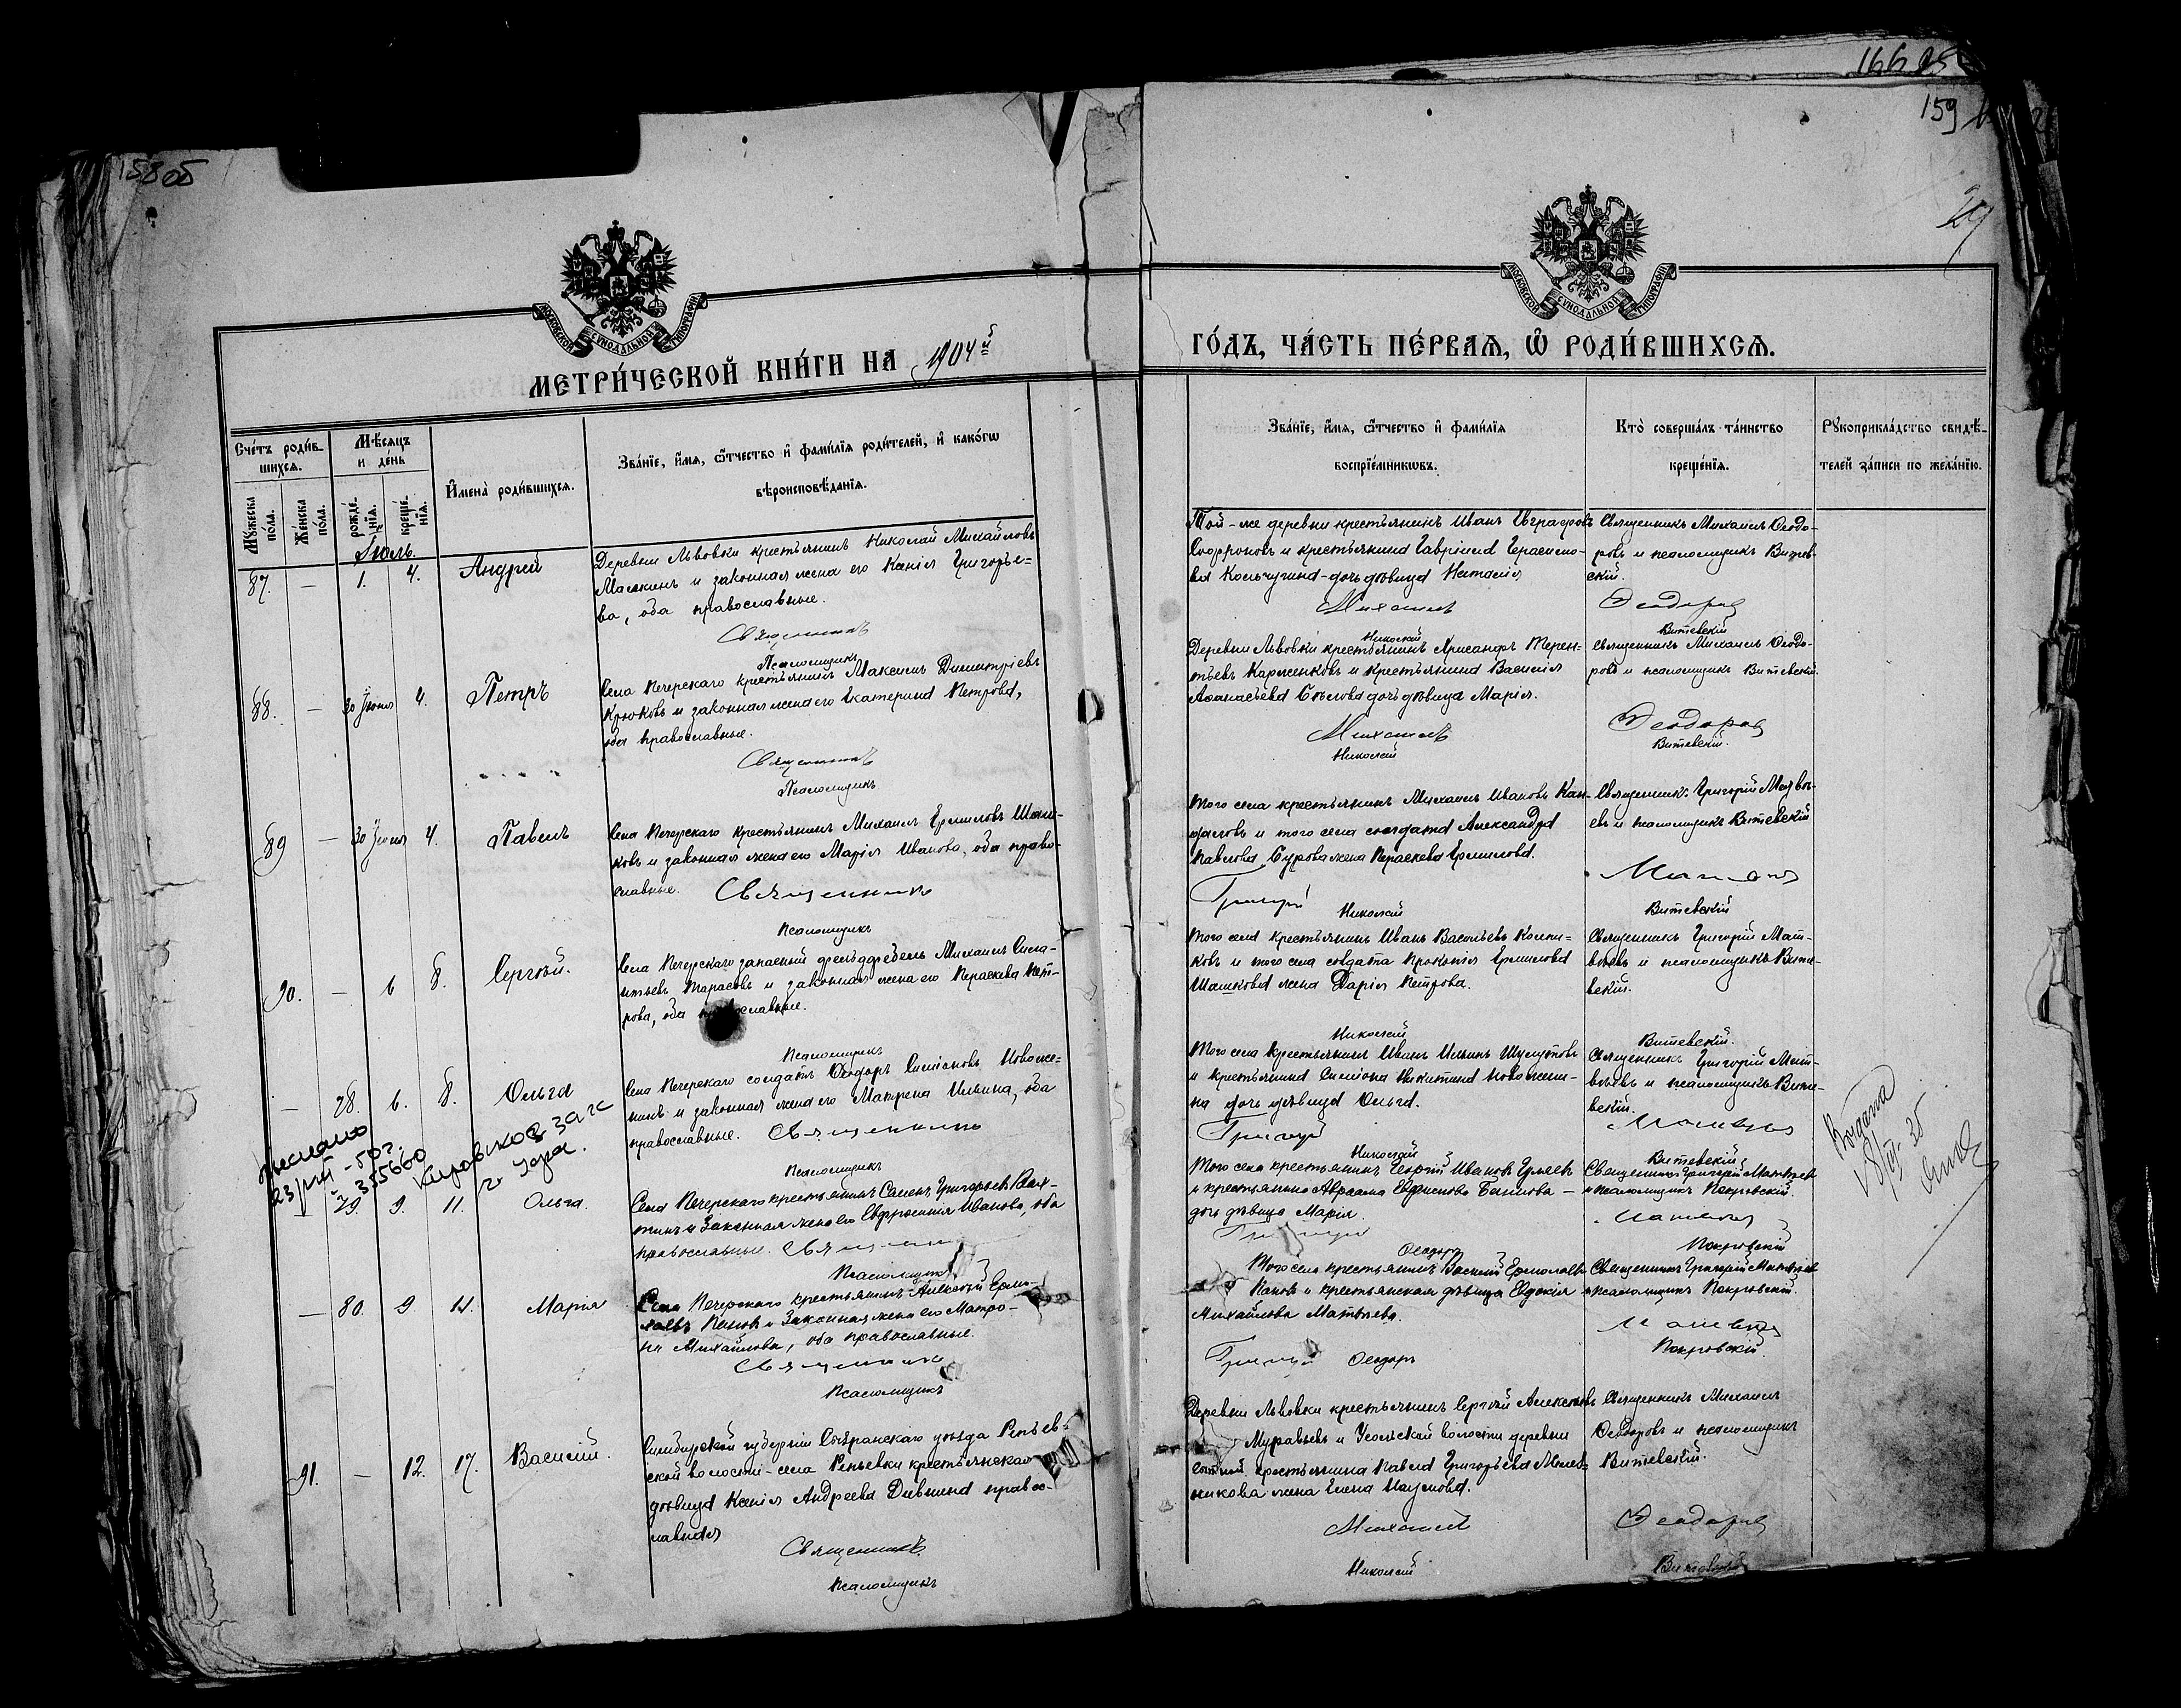 158 об
166 об
159
МОСКОВСКОЙ СѴНОДАЛЬНОЙ ТИПОГРАФІИ
МОСКОВСКОЙ СѴНОДАЛЬНОЙ ТИПОГРАФІИ
МЕТРИ́ЧЕСКОЙ КНИ́ГИ НА 1904й
ГО́ДЪ, ЧА́СТЬ ПЕ́РВАЯ, Ѿ РОДИ́ВШИХСЯ.
Сче́тъ роди́в-
шихся.
Мѣ́сяцъ
и де́нь
И҆мена̀ роди́вшихся.
Зва́нїе, и҆́мя, ѻ҆́тчество и҆ фами́лїя роди́телей, и҆ како́гѡ
вѣроисповѣ́данїя.
Му́жеска
по́ла.
Же́нска
по́ла.
рожде́-
нїя.
креще́-
нїя.
Зва́нїе, и҆́мя, ѻ҆́тчество и҆ фами́лїя
воспрїе́мникѡвъ.
Кто̀ соверша́лъ та́инство
креще́нїя.
Рꙋкоприкла́дство свидѣ́-
телей за́писи по жела́нїю.
Іюль
87. — 1. 4. Андрей
Деревни Львовки крестьянинъ Николай Михайловъ
Малкинъ и законная жена его Ксенія Григорье=
ва, оба православные.
Священникъ
Псаломщикъ
Той-же деревни крестьянинъ Иванъ Евграфовъ
Софроновъ и крестьянина Гавріила Герасимо-
ва Кольчугина-дочь дѣвица Наталія
Михаилъ
Николай
Священникъ Михаилъ Ѳеодо-
ровъ и псаломщикъ Витев-
скій.
Ѳеодоровъ
Витевскій
88. — 30 Іюня 4. Петръ
Села Печерскаго крестьянинъ Максимъ Димитріевъ
Крюковъ и законная жена его Екатерина Петрова,
оба православные.
Священникъ
Псаломщикъ
Деревни Львовки крестьянинъ Александръ Терен=
тьевъ Карженковъ и крестьянина Василія
Аѳанасьева Бѣлова дочь дѣвица Марія.
Михаилъ
Николай
Священникъ Михаилъ Ѳеодо-
ровъ и псаломщикъ Витевскій.
Ѳеодоровъ
Витевскій.
89 — 30 Іюня 4. Павелъ
Села Печерскаго крестьянинъ Михаилъ Ермиловъ Шаш-
ковъ и законная жена его Марія Иванова, оба право-
славные. Священникъ
Псаломщикъ
Того села крестьянинъ Михаилъ Ивановъ Кан-
фаловъ и того села солдата Александра
Павлова Бурова жена Параскева Ермилова.
Григорій
Николай
Священникъ Григорій Матвѣ-
евъ и псаломщикъ Витевскій
Матвѣевъ
Витевскій
90. — 6 8. Сергѣй.
Села Печерскаго запасный фельдфебель Михаилъ Сила-
нтьевъ Тарасовъ и законная жена его Параскева Пет-
рова, оба православные.
Псаломщикъ
Того села крестьянинъ Иванъ Васильевъ Колпи-
ковъ и того села солдата Прокопія Ермилова
Шашкова жена Дарія Петрова.
Николай
Священникъ Григорій Мат-
вѣевъ и псаломщикъ Вите-
вскій.
Витевскій.
— 28. 6. 8. Ольга
Села Печерскаго солдатъ Ѳеодоръ Симіоновъ Новоже-
нинъ и законная жена его Макрена Ильина, оба
православные. Священникъ
Псаломщикъ
Того села крестьянинъ Иванъ Ильинъ Шумутовъ
и крестьянина Симіона Никитина Новожени-
на дочь дѣвица Ольга.
Григорій
Николай
Священникъ Григорій Мат-
вѣевъ и псаломщикъ Вите-
вскій.
Матвѣевъ
Витевскій
23/VIII-50г.
355660
— 29. 9. 11. Ольга.
Села Печерскаго крестьянинъ Самсонъ Григорьевъ
и законная жена его Евфросинія Иванова, оба
православные. Священникъ
Псаломщикъ
Того села крестьянинъ Георгій Ивановъ Гуляевъ
и крестьянина Авраама Евфимова Башлова —
дочь дѣвица Марія.
Григорій
Ѳеодоръ
Священникъ Григорій Матвѣевъ
и псаломщикъ Покровскій.
Матвѣевъ
Покровскій
— 80. 9 11. Марія
Села Печерскаго крестьянинъ Алексѣй Ермо-
лаевъ Пановъ и законная жена его Матро-
на Михайлова, оба православные.
Священникъ
Псаломщикъ
Того села крестьянинъ Василій Ермолаевъ
Пановъ и крестьянская дѣвица Евдокія
Михайлова Матвѣева.
Григорій Ѳеодоръ
Священникъ Григорій Матвѣевъ
и псаломщикъ Покровскій.
Матвѣевъ
Покровскій
91. — 12. 17. Василій.
Симбирской губерніи Сызранскаго уѣзда Репьев-
ской волости-села Репьевки крестьянская
дѣвица Ксенія Андреева Дивнина правос-
лавная
Священникъ
Псаломщикъ
Деревни Львовки крестьянинъ Сергѣй Алексѣевъ
Муравьевъ и Усольской волости деревни
крестьянина Павла Григорьева Мель-
никова жена Елена Наумова.
Михаилъ
Николай
Священникъ Михаилъ
Ѳеодоровъ и псаломщикъ
Витевскій.
Ѳеодоровъ
Витевскій